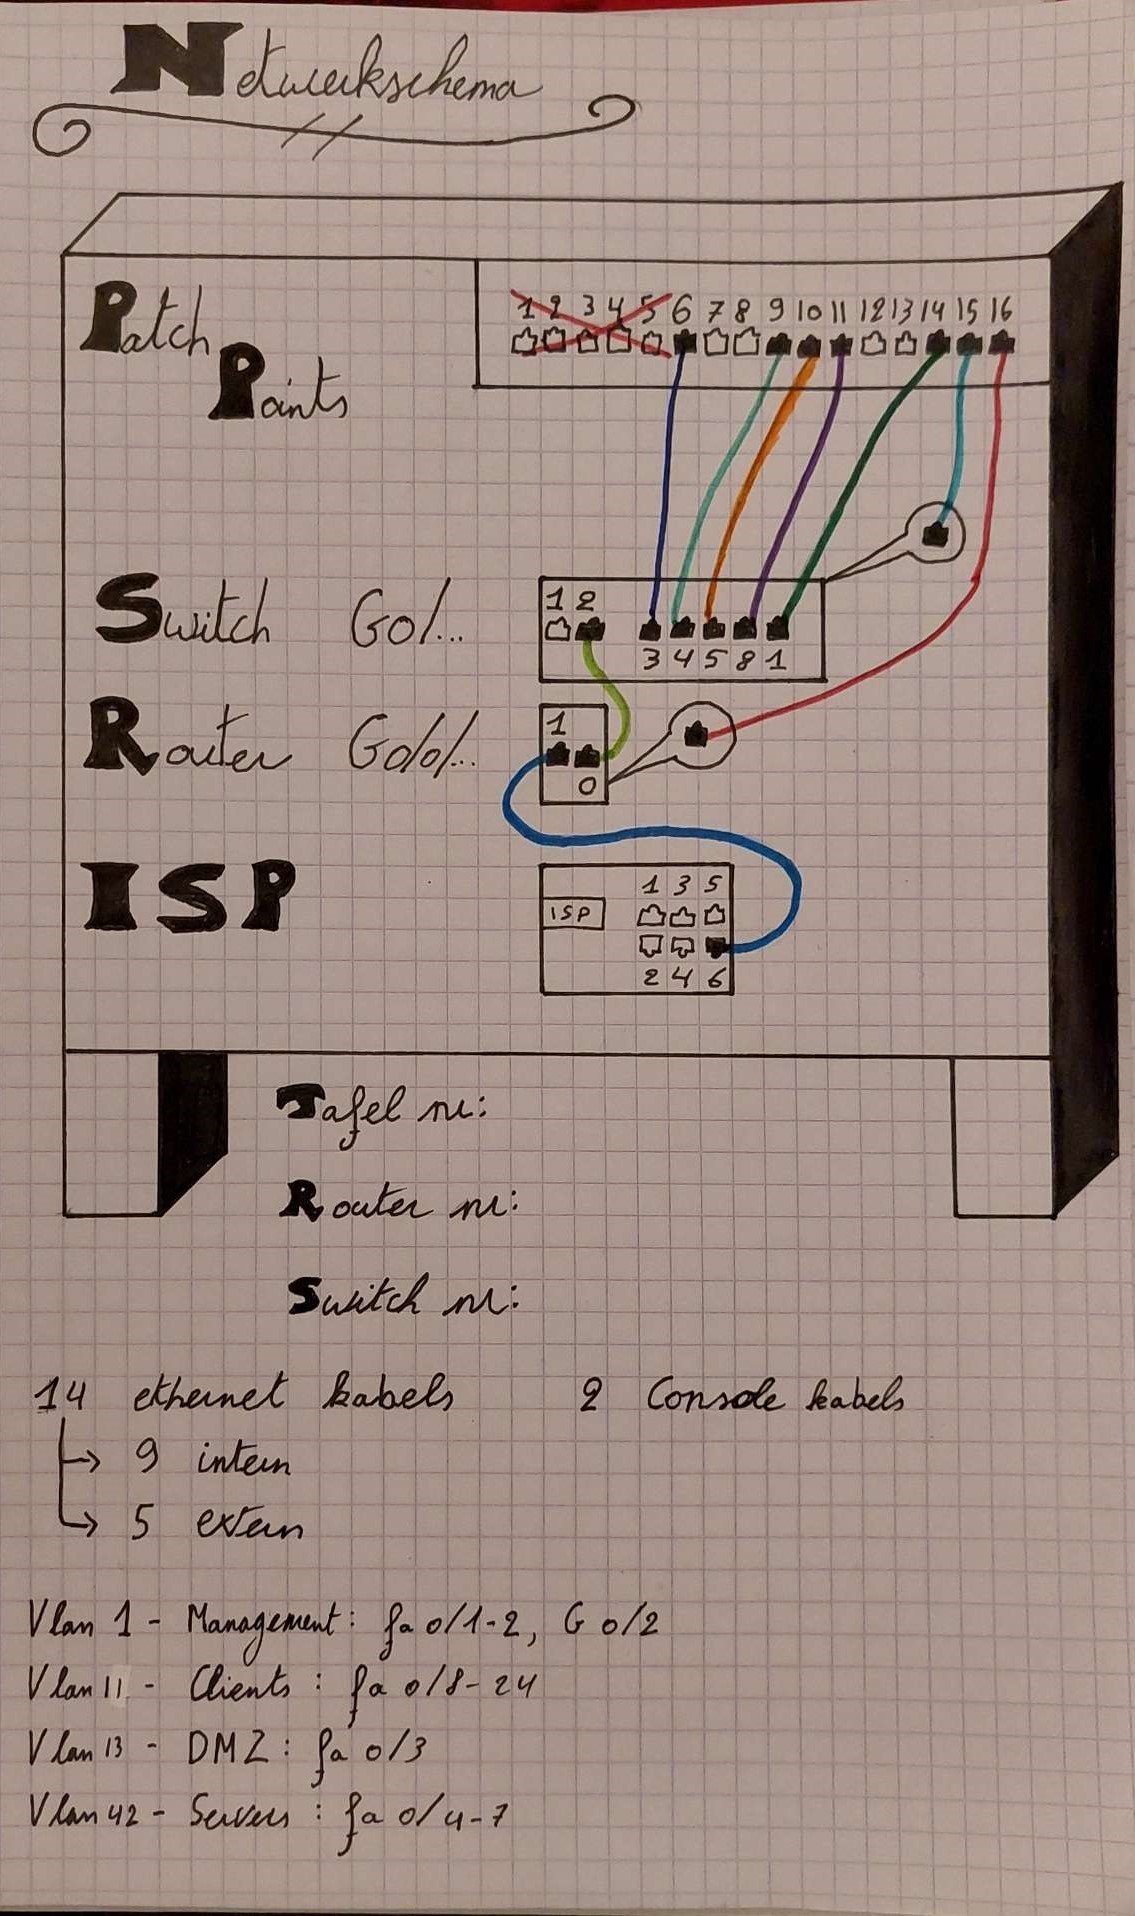 Netwerkschema
1 2 3 4 5 6 7 8 9 10 11 12 13 14 15 16
Patch
Points
Switch G0/...
1 2
3 4 5 8 1
Router G0/0/...
1
0
ISP
ISP
1 3 5
2 4 6
Tafel nr:
Router nr:
Switch nr:
14 ethernet kabels 2 Console kabels
→ 9 intern
→ 5 extern
Vlan 1 - Management: fa 0/1-2, G 0/2
Vlan 11 - Clients : fa 0/8-24
Vlan 13 - DMZ : fa 0/3
Vlan 42 - Servers : fa 0/4-7